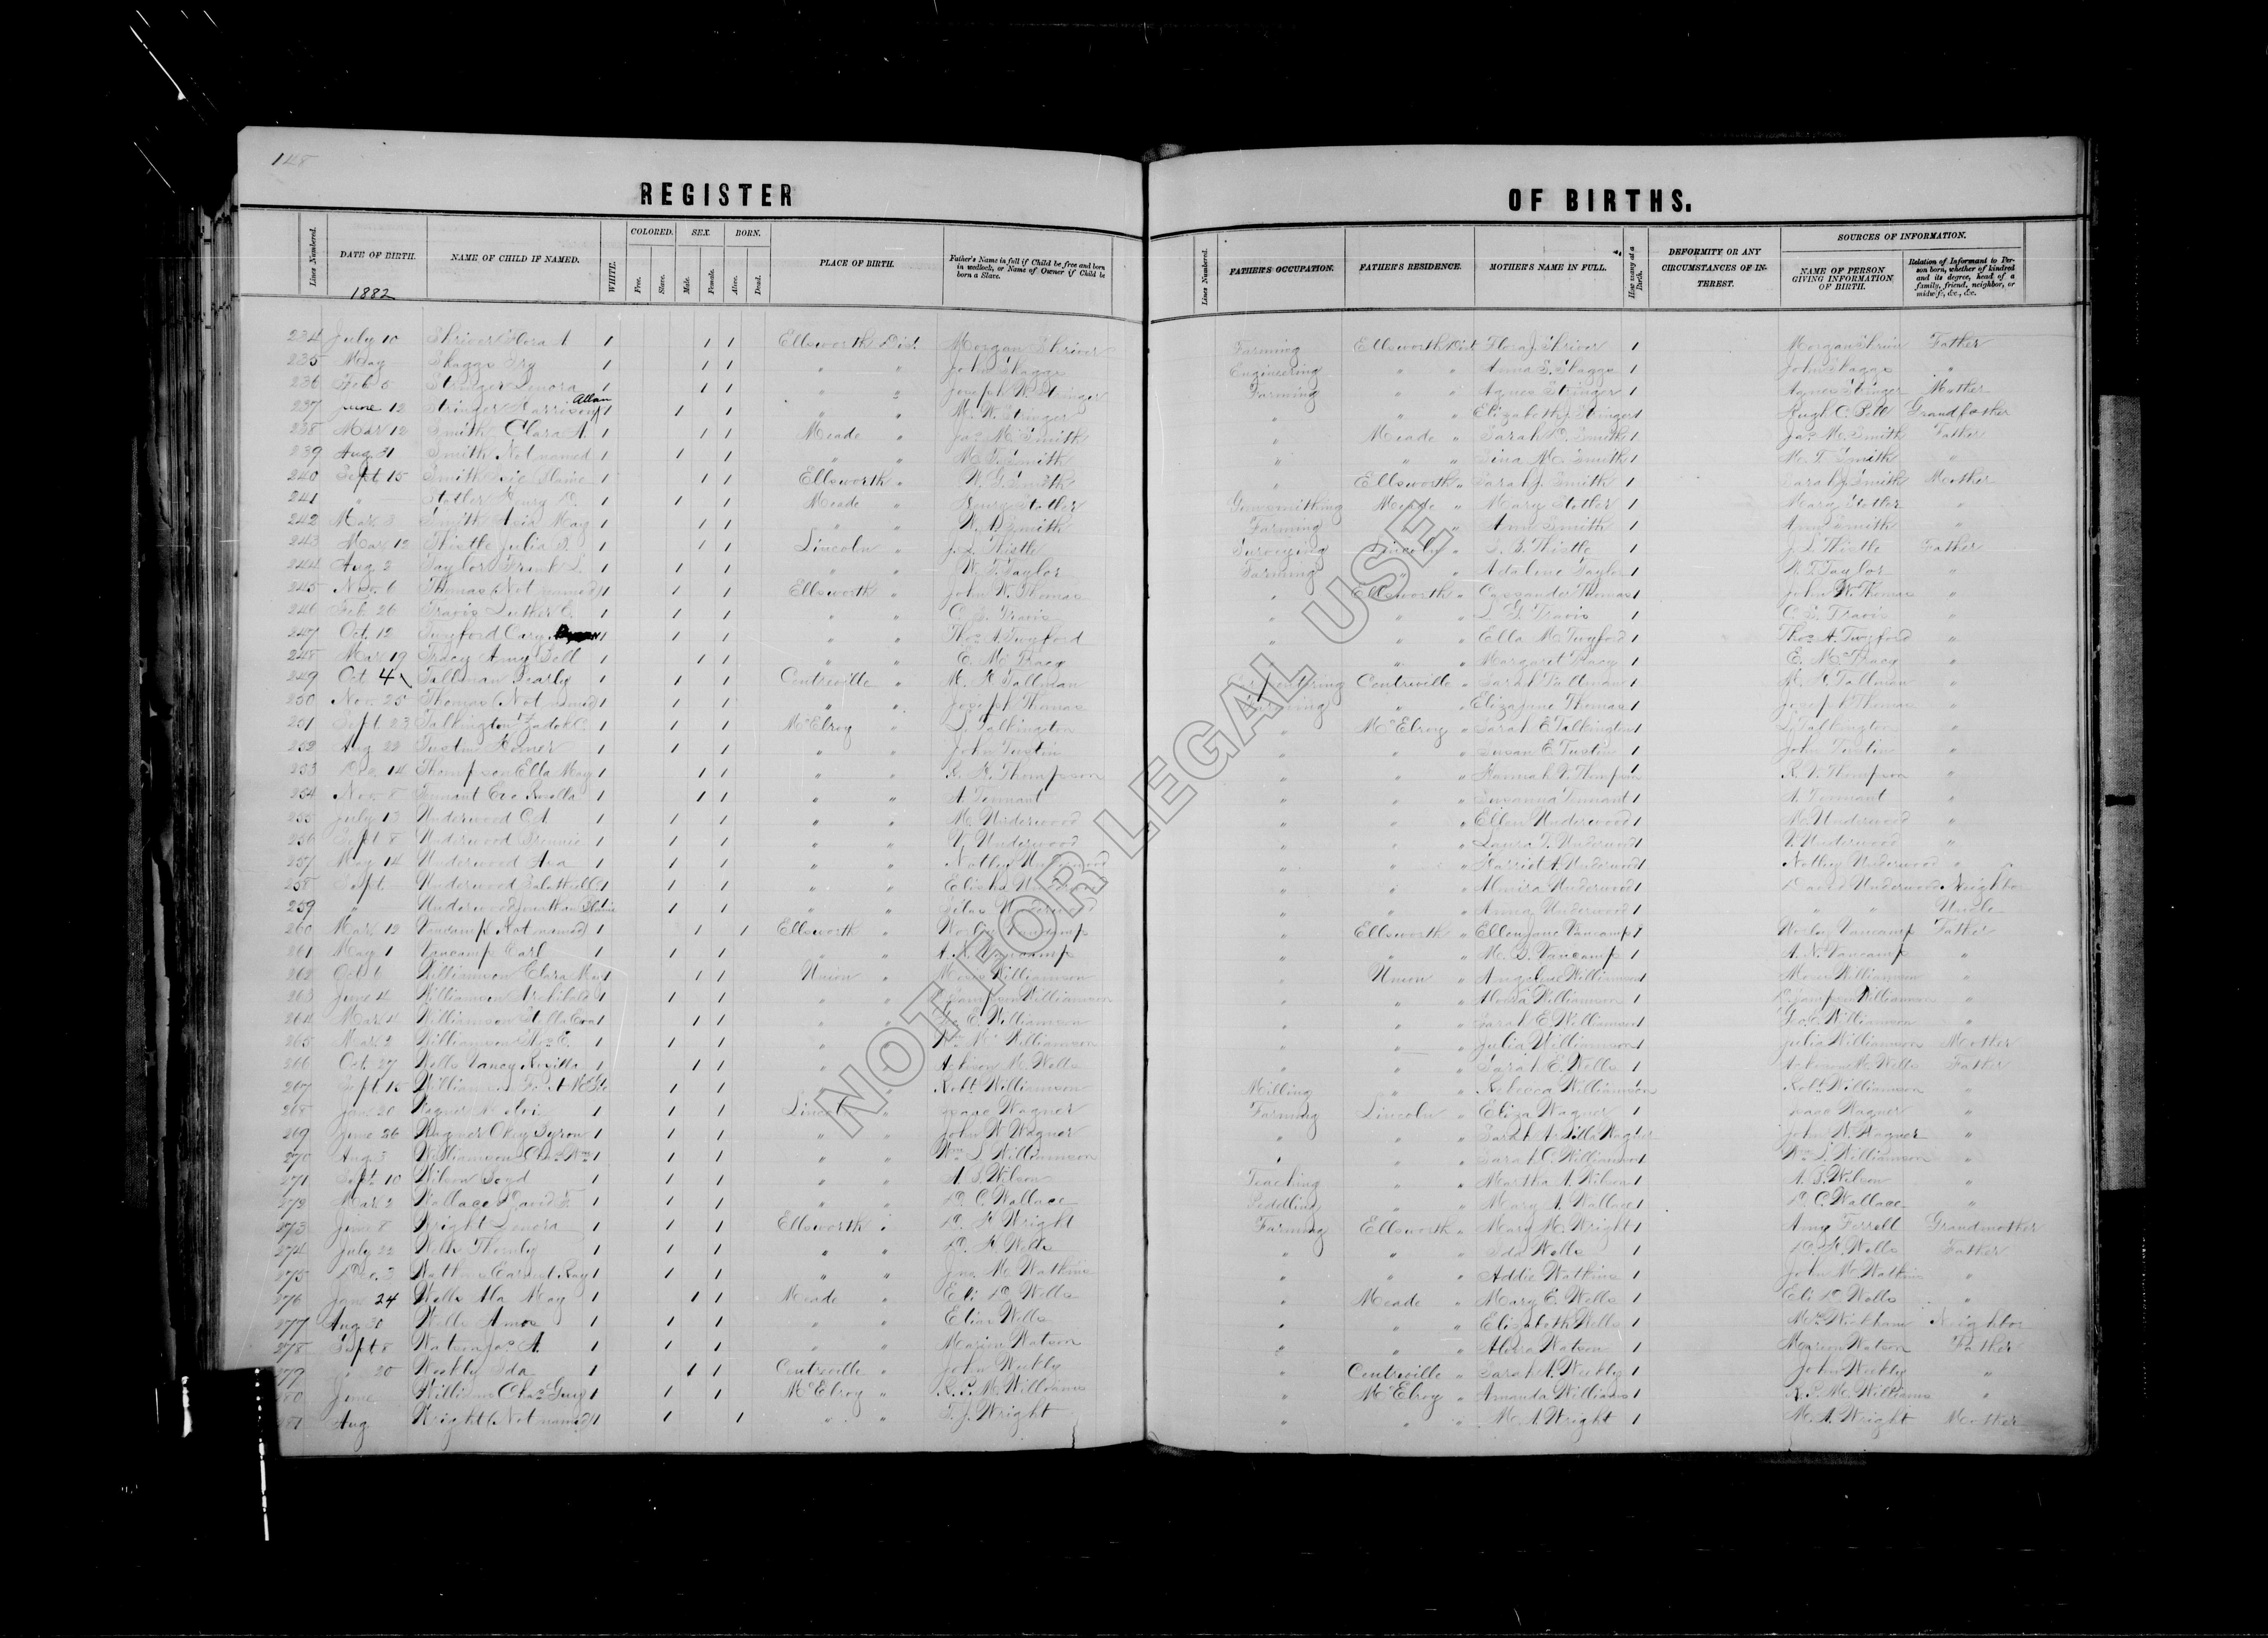 148
REGISTER OF BIRTHS.
Lines Numbered. DATE OF BIRTH. NAME OF CHILD IF NAMED. WHITE. COLORED. Free. Slave. SEX. Male. Female. BORN. Alive. Dead. PLACE OF BIRTH. Father's Name in full if Child be free and born in wedlock, or Name of Owner if Child be born a Slave. Lines Numbered. FATHER'S OCCUPATION. FATHER'S RESIDENCE. MOTHER'S NAME IN FULL. How many at a Birth. DEFORMITY OR ANY CIRCUMSTANCES OF INTEREST. SOURCES OF INFORMATION. NAME OF PERSON GIVING INFORMATION OF BIRTH. Relation of Informant to Person born, whether of kindred and its degree, head of a family, friend, neighbor, or midwife, &c., &c.
1882
234 July 10 Shriver Flora A 1 1 1 Ellsworth Dist Morgan Shriver Farming Ellsworth Dist Flora J. Shriver 1 Morgan Shriver Father
235 May Skaggs 1 1 1 " " John Skaggs Engineering " " Anna S. Skaggs 1 John Skaggs "
236 Feb 5 Stringer Lenora 1 1 1 " " Joseph W. Stringer Farming " " Agnes Stringer 1 Agnes Stringer Mother
237 June 12 Stringer Harrison Allan 1 1 1 " " M. W. Stringer " " " Elizabeth J. Stringer 1 Hugh C. Grandfather
238 Mar 12 Smith Clara A. 1 1 1 Meade " Jas M. Smith " Meade " Sarah D. Smith 1 Jas M. Smith Father
239 Aug 31 Smith Not named 1 1 1 " " M. T. Smith " " " Sina M. Smith 1 M. T. Smith "
240 Sept 15 Smith 1 1 1 Ellsworth " Smith " Ellsworth " Sarah J. Smith 1 Sarah J. Smith Mother
241 " Stotler Henry D. 1 1 1 Meade " Henry Stotler Gunsmithing Meade " Mary Stotler 1 Mary Stotler "
242 Mar 3 Smith May 1 1 1 " " W. A. Smith Farming " " Amy Smith 1 Amy Smith "
243 Mar 12 Thistle Julia 1 1 1 Lincoln " J. L. Thistle Surveying Lincoln " Thistle 1 J. L. Thistle Father
244 Aug 2 Taylor Frank L. 1 1 1 " " W. T. Taylor Farming " " Adaline Taylor 1 W. T. Taylor "
245 Nov. 6 Thomas (Not named) 1 1 1 Ellsworth " John W. Thomas " Ellsworth " Cassander Thomas 1 John W. Thomas "
246 Feb 26 Travis Luther C. 1 1 1 " " C. E. Travis " " " Travis 1 C. E. Travis "
247 Oct. 12 Twyford Cary 1 1 1 " " Thos A. Twyford " " " Ella M. Twyford 1 Thos A. Twyford "
248 Mar 19 Tracy Amy Bell 1 1 1 " " E. M. Tracy " " " Margaret Tracy 1 E. M. Tracy "
249 Oct 4 Tallman Pearly 1 1 1 Centreville " M. H. Tallman Carpentering Centreville " Sarah Tallman 1 M. H. Tallman "
250 Nov. 25 Thomas (Not named) 1 1 1 " " Joseph Thomas Farming " " Eliza Jane Thomas 1 Joseph Thomas "
251 Sept. 23 Talkington Zadok C. 1 1 1 McElroy " Talkington " McElroy " Sarah E Talkington 1 Talkington "
252 Aug 22 Tustin Homer 1 1 1 " " John Tustin " " " Susan E. Tustin 1 John Tustin "
253 Dec 14 Thompson Ella May 1 1 1 " " Thompson " " " Hannah V. Thompson 1 Thompson "
254 Nov. 8 Tennant Eva Rosella 1 1 1 " " A. Tennant " " " Susanna Tennant 1 A. Tennant "
255 July 13 Underwood 1 1 1 " " M. Underwood " " " Ellen Underwood 1 M. Underwood "
256 Sept 8 Underwood 1 1 1 " " V. Underwood " " " Laura T. Underwood 1 V. Underwood "
257 May 14 Underwood Ava 1 1 1 " " Notley Underwood " " " Harriet A. Underwood 1 Notley Underwood "
258 Sept Underwood 1 1 1 " " Elisha Underwood " " " Almira Underwood 1 Underwood Neighbor
259 " Underwood Jonathan Blaine 1 1 1 " " Silas Underwood " " " Underwood 1 " " Uncle
260 Mar 12 Vancamp (Not named) 1 1 1 Ellsworth " Vancamp " Ellsworth " Ellen Jane Vancamp 1 Vancamp Father
261 May 1 Vancamp Carl 1 1 1 " " A. N. Vancamp " " " M. B. Vancamp 1 A. N. Vancamp "
262 Oct 6 Williamson Clara May 1 1 1 Union " Moses Williamson " Union " Angeline Williamson 1 Moses Williamson "
263 June 4 Williamson Archibald 1 1 1 " " Williamson " " " Williamson 1 Williamson "
264 Mar 4 Williamson Stella 1 1 1 " " Geo E. Williamson " " " Sarah E. Williamson 1 Geo E. Williamson "
265 Mar 2 Williamson Thos E. 1 1 1 " " Wm M. Williamson " " " Julia Williamson 1 Julia Williamson Mother
266 Oct. 27 Wells Nancy 1 1 1 " " Acheson M. Wells " " " Sarah E. Wells 1 Acheson M. Wells Father
267 Sept 15 Williamson 1 1 1 " " Robt Williamson Milling " " Rebecca Williamson 1 Robt Williamson "
268 Jan 20 Wagner 1 1 1 Lincoln " Isaac Wagner Farming Lincoln " Eliza Wagner 1 Isaac Wagner "
269 June 26 Wagner Okey Byron 1 1 1 " " John W Wagner " " " Wagner John W. Wagner "
270 Aug 3 Williamson Chas Wm 1 1 1 " " Wm L Williamson " " " Sarah C. Williamson 1 Wm L. Williamson "
271 Sept 10 Wilson Boyd 1 1 1 " " A. S. Wilson Teaching " " Martha A. Wilson 1 A. S. Wilson "
272 Mar 2 Wallace David 1 1 1 " " D. C. Wallace Peddling " " Mary A. Wallace 1 D. C. Wallace "
273 June 8 Wright Lenora 1 1 1 Ellsworth " D. H. Wright Farming Ellsworth " Mary M. Wright 1 Amy Ferrell Grandmother
274 July 22 Wells Thornly 1 1 1 " " D. H. Wells " " " Ida Wells 1 D. H. Wells Father
275 Dec. 3 Watkins Earnest Ray 1 1 1 " " Jno. M. Watkins " " " Addie Watkins 1 John M. Watkins "
276 June 24 Wells Ala May 1 1 1 Meade " Eli D. Wells " Meade " Mary E. Wells 1 Eli D. Wells "
277 Aug 30 Wells Amos 1 1 1 " " Elias Wells " " " Elizabeth Wells 1 Wickham Neighbor
278 Sept 8 Watson Jas A. 1 1 1 " " Marion Watson " " " Watson 1 Marion Watson Father
279 " 20 Weekly Ida 1 1 1 Centreville " John Weekly " Centreville " Sarah A. Weekly 1 John Weekly "
280 June Williams Chas Guy 1 1 1 McElroy " R. P. M. Williams " McElroy " Amanda Williams 1 R. P. M. Williams "
281 Aug Wright (Not named) 1 1 1 " " T. J. Wright " " " M. A. Wright 1 M. A. Wright Mother
NOT FOR LEGAL USE.